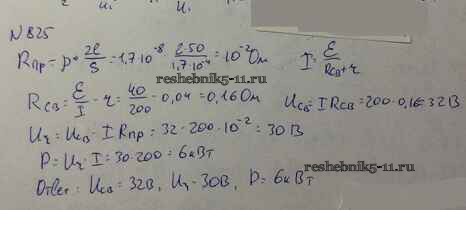 N 825
Rпр = ρ · 2l/S = 1,7·10⁻⁸ 2·50/1,7·10⁻⁴ = 10⁻² Ом I = ℰ/Rсв+r
reshebnik5-11.ru
Rсв = ℰ/I - r = 40/200 - 0,04 = 0,16 Ом Uсв = I Rсв = 200·0,16 = 32 В
U₂ = Uсв - I Rпр = 32 - 200·10⁻² = 30 В
P = U₂·I = 30·200 = 6 кВт
reshebnik5-11.ru
Ответ: Uсв = 32В, U₂ - 30В, P = 6кВт